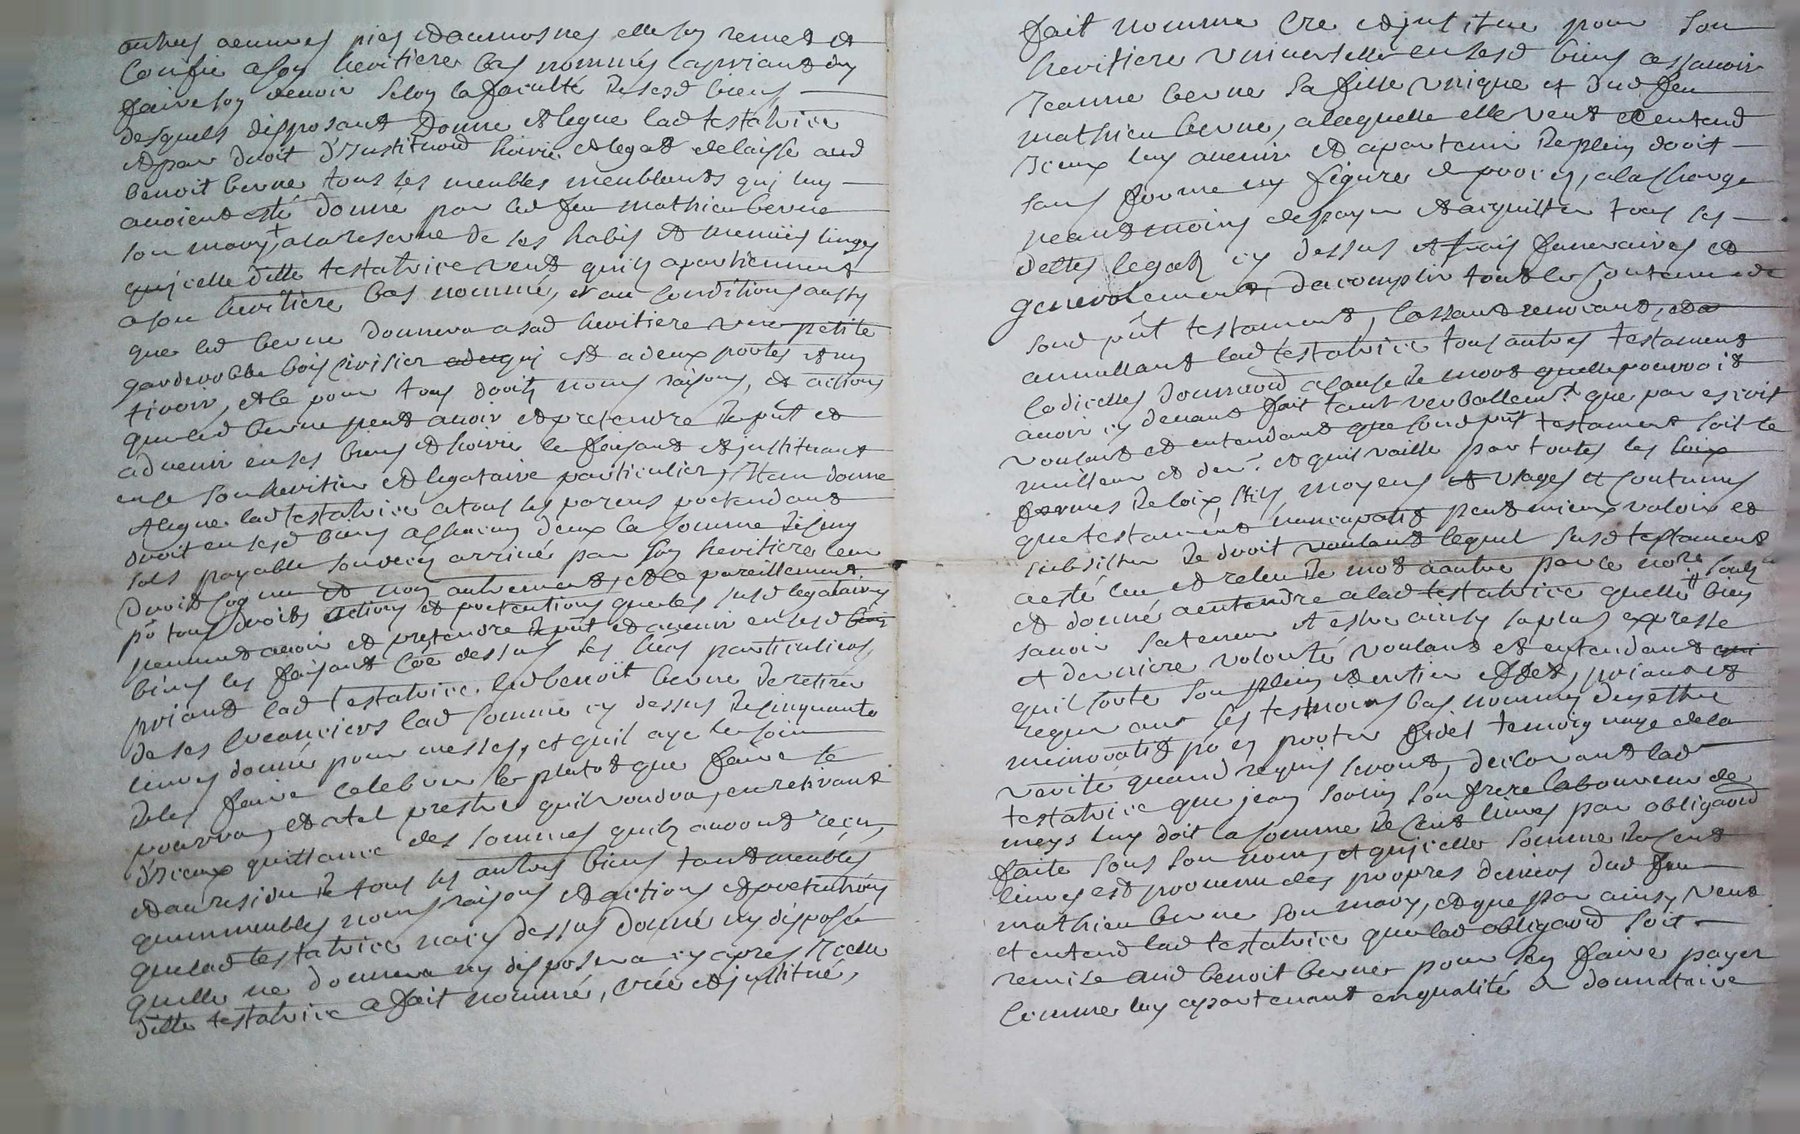 autres oeuvres pies et aumosnes elle s'en remet et
confie a son heritiere bas nommée la priant d'en
faire son devoir selon la faculté de sesd biens
desquels disposant donne et legue lad testatrice
et par droit d'institu[ti]on hoirie et legat delaisse aud
benoit berne tous les meubles meublants qui luy
avoient esté donné par led feu mathieu berne
son mary + a la reserve de ses habis et menües linges
qu'icelle ditte testatrice veut qu'ils apartiennent
a son heritiere bas nommée, et au conditions aussy
que led berne donnera a sad heritiere une petite
garderobbe bois serisier qui est a deux portes et un
tiroir, et ce pour tous droits noms raisons, et actions
que led berne peut avoir et pretendre de pnt et
advenir en ses biens et hoirie le faisant et instituant
en ce son heritier et legataire particulier, Item donne
et legue lad testatrice a tous ses parens pretendant
droit en sesd biens a chacun d'eux la somme de cinq
sols payable son deces arrivé par son heritiere leur
droit cognu et non autrement, et ce pareillement
pr tous droits actions et pretentions que les susd legataires
peuvent avoir et pretendre de pnt et avenir en sesd
biens les faisant cõe dessus ses heritiers particuliers,
priant lad testatrice led benoit berne de retirer
de ses creanciers lad somme cy dessus de cinquante
livres donnée pour messes, et qu'il aye le soin
de les faire celebrer le plutot que faire se
pourra, et a tel prestre qu'il voudra, en retirant
d'iceux quittance des sommes qu'ils auront reçu,
et au residu de tous ses autres biens tant meubles
qu'immeubles noms raisons et actions et pretentions
que lad testatrice n'a cy dessus donné ny disposé
qu'elle ne donnera ny disposera cy apres Icelle
ditte testatrice a fait nommé, crée et institué,
fait nomme cre et institue pour son
heritiere universelle en sesd biens a sçavoir
Jeanne berne sa fille unique et dud feu
mathieu berne, a laquelle elle veut et entend
Iceux luy avenir et apartenir de plein droit
sans forme ny figure de procez, a la charge
neantmoins de payer et aiquitter tous les
dettes legats cy dessus et frais funeraires et
generalement d'acomplir tout le contenu de
sond pnt testament, cassant revocant, et
annullant lad testatrice tous autres testament
codicelles donna[ti]on a cause de mort qu'elle pourroit
avoir cy devant fait tant verballemt que par escrit
voulant et entendant que sond pnt testament soit le
meilleur et der. et qu'il vaille par toutes les
formes de loix, stils, moyens et usages et coutumes
que testament nuncupatif peut mieux valoir et
subsister de droit lequel susd testament
a esté leu et releu de mot a autre par le nore soubz
et donné a entendre a lad testatrice qu'elle bien
savoir sa teneur et estre ainsy sa plus expresse
et derniere volonté voulant et entendant
qu'il sorte son plein et entier effet, priant et
requerant les tesmoins bas nommés d'en estre
memoratif pr en porter fidel temoignage de la
verité quand requis seront, declarant lad
testatrice que jean son frere laboureur de
meys luy doit la somme de cent livres par obliga[ti]on
faite sous son nom, et qu'icelle somme de cent
livres est provenu des propres deniers dud feu
mathieu berne son mary, et que par ainsy veut
et entend lad testatrice que lad obliga[ti]on soit
remise aud benoit berne pour s'en faire payer
comme luy apartenant en qualité de donnataire